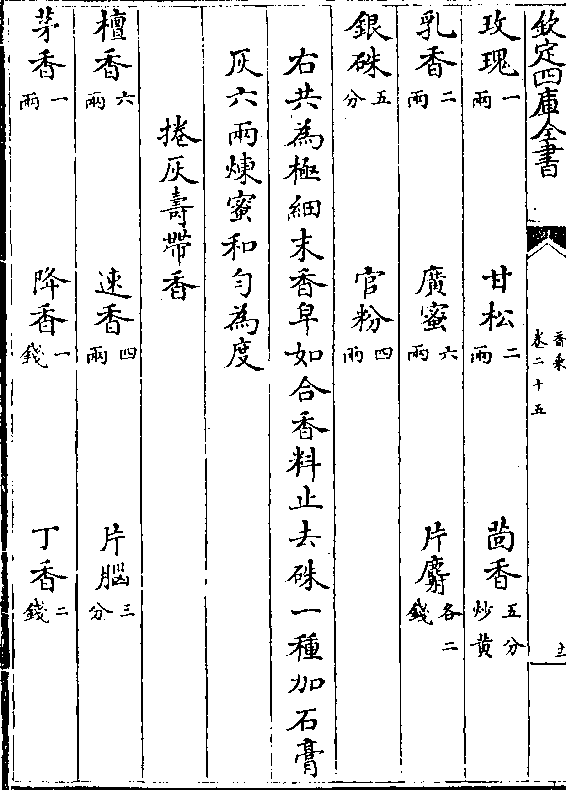 欽定四庫全書
香乘
卷二十五
玫瑰一兩 甘松二兩 茴香五分炒黄
乳香二兩 廣蜜六兩 片麝各二錢
銀硃五分 官粉四兩
右共為極細末香皁如合香料止去硃一種加石膏
灰六兩煉蜜和勻為度
捲灰壽帶香
檀香六兩 速香四兩 片腦三分
茅香一兩 降香一錢 丁香二錢